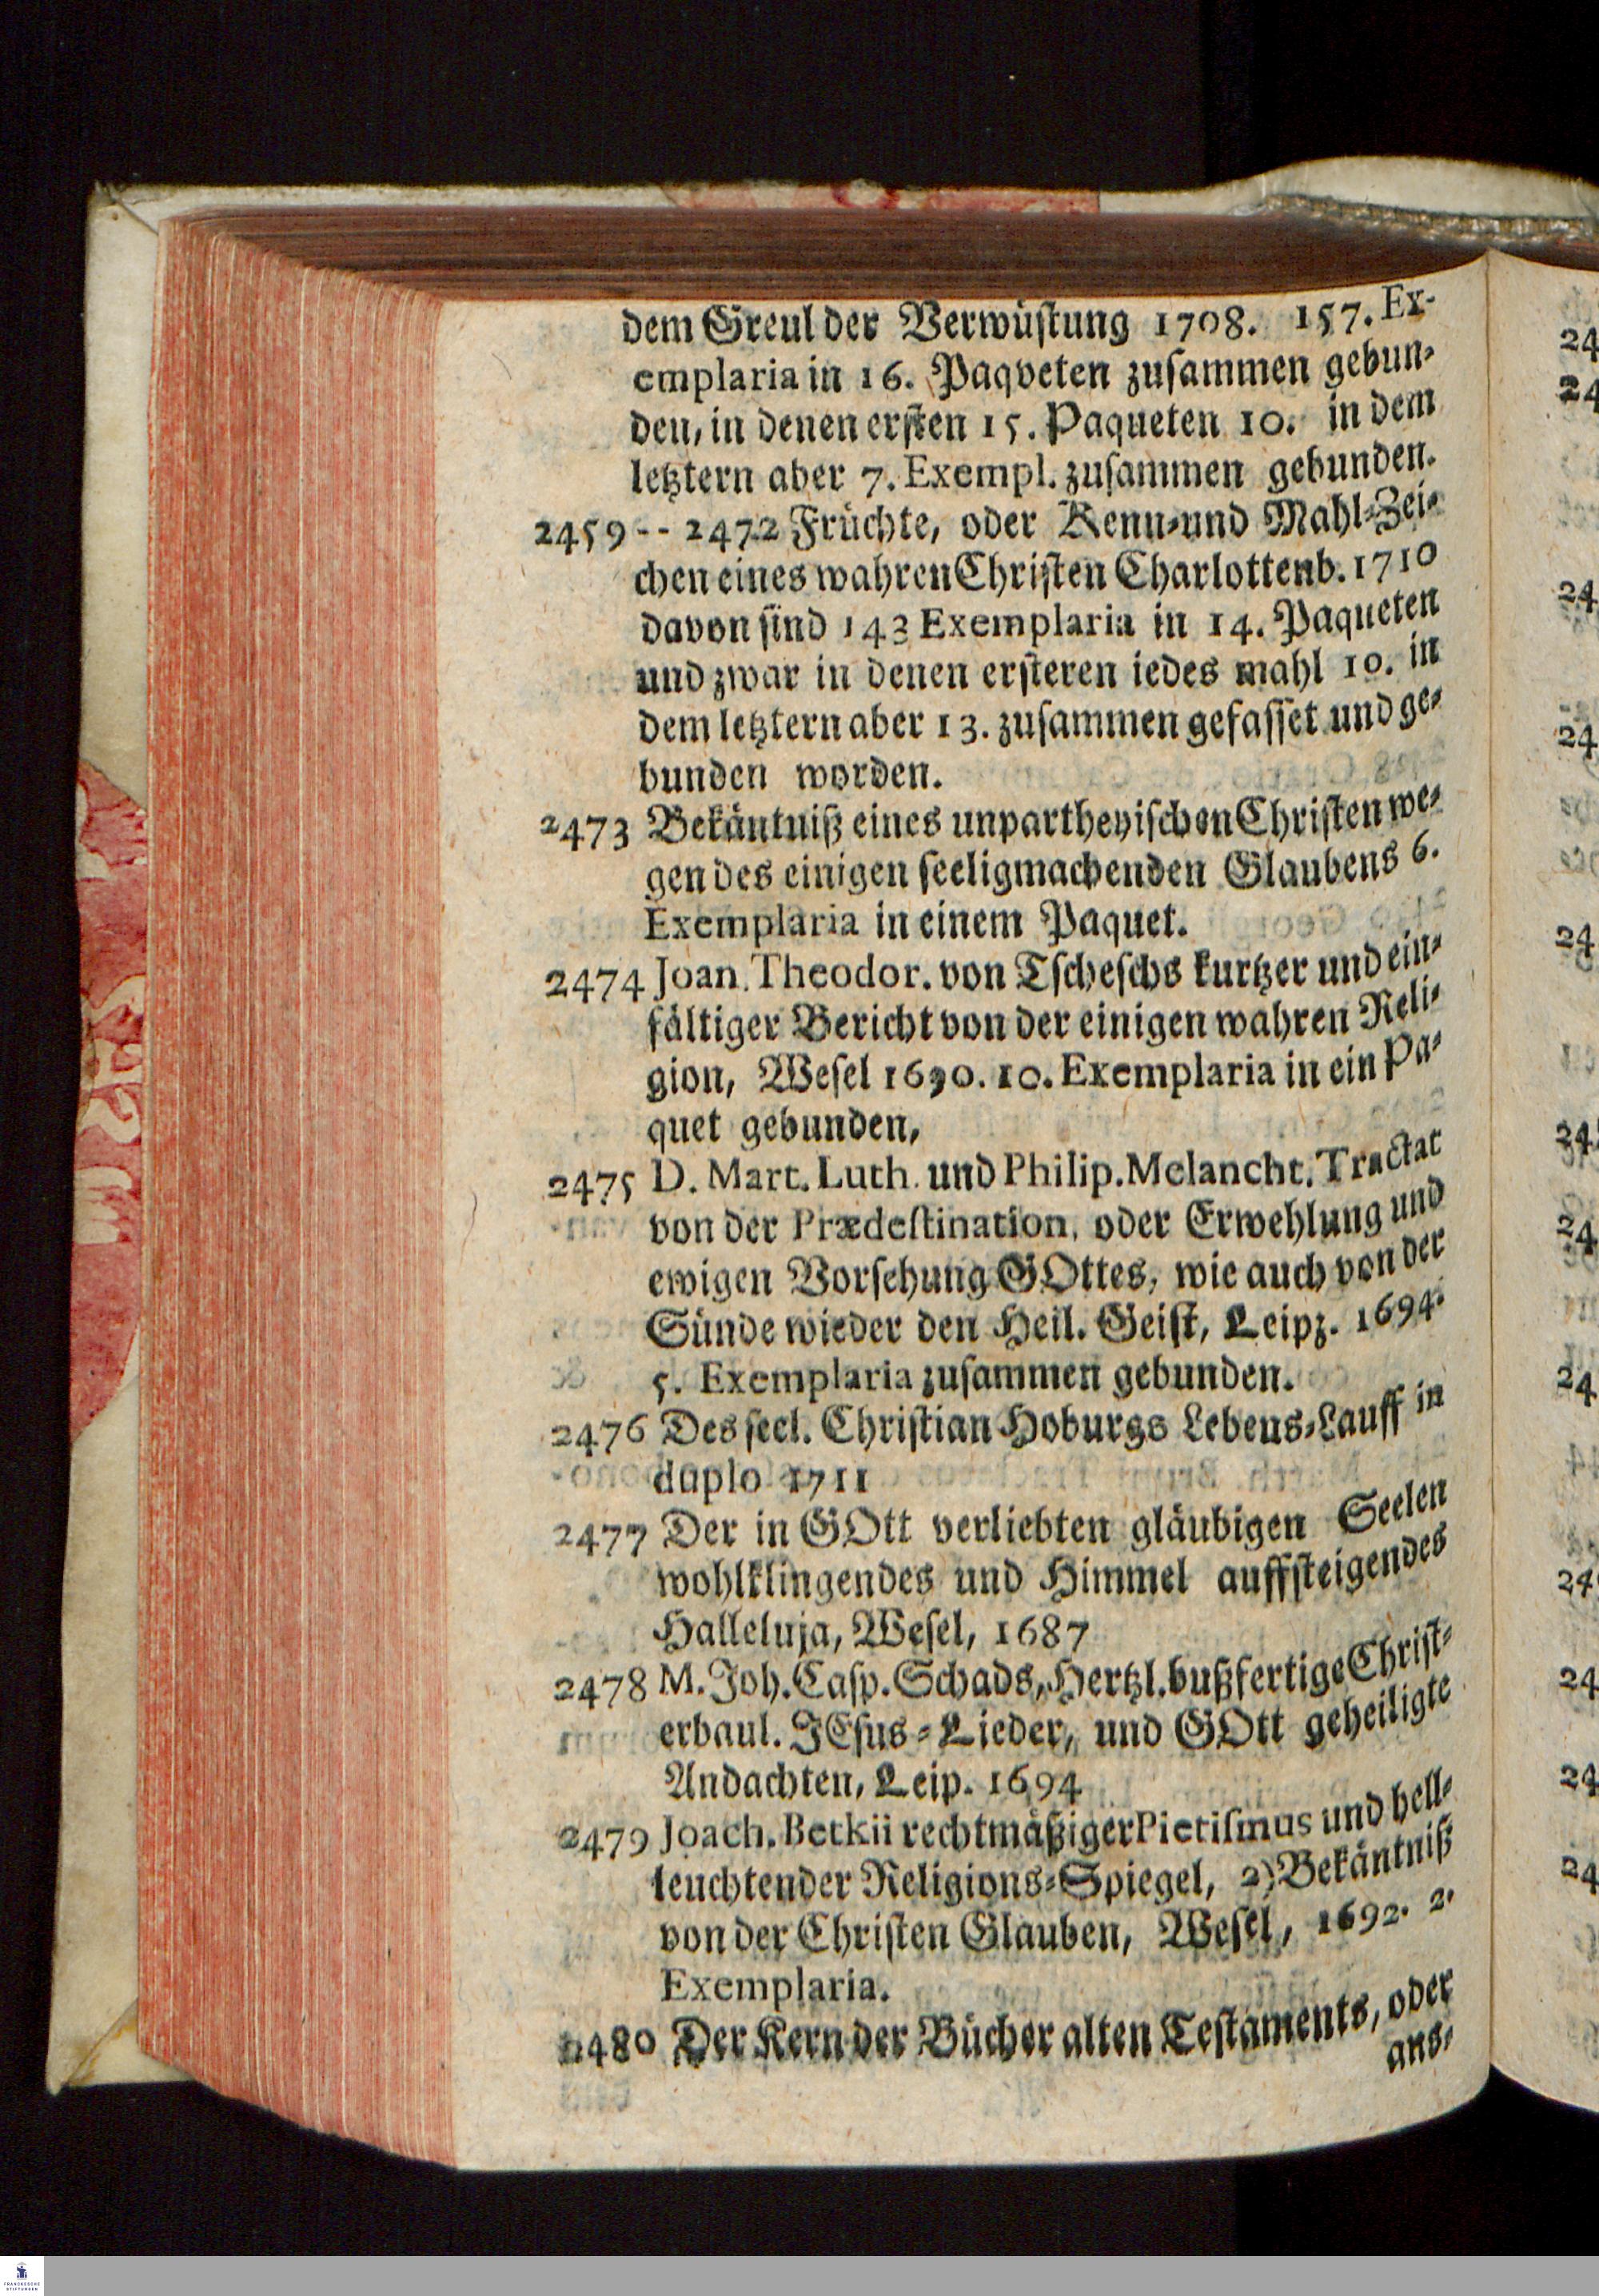 dem Greul der Verwüstung 1708. 157. Ex-
emplaria in 16. Paqveten zusammen gebun-
den, in denen ersten 15. Paqueten 10. in dem
letztern aber 7. Exempl. zusammen gebunden.
2459 -- 2472 Früchte, oder Kenn- und Mahl-Zei-
chen eines wahren Christen Charlottenb. 1710
davon sind 143 Exemplaria in 14. Paqueten
und zwar in denen ersteren iedes mahl 10. in
dem letztern aber 13. zusammen gefasset und ge-
bunden worden.
2473 Bekäntniß eines unpartheyischen Christen we-
gen des einigen seeligmachenden Glaubens 6.
Exemplaria in einem Paquet.
2474 Joan. Theodor. von Tscheschs kurtzer und ein-
fältiger Bericht von der einigen wahren Reli-
gion, Wesel 1690. 10. Exemplaria in ein Pa-
quet gebunden,
2475 D. Mart. Luth. und Philip. Melancht. Tractat
von der Prædestination, oder Erwehlung und
ewigen Vorsehung GOttes, wie auch von der
Sünde wieder den Heil. Geist, Leipz. 1694.
5. Exemplaria zusammen gebunden.
2476 Des seel. Christian Hoburgs Lebens-Lauff in
duplo 1711
2477 Der in GOtt verliebten gläubigen Seelen
wohlklingendes und Himmel auffsteigendes
Halleluja, Wesel, 1687
2478 M. Joh. Casp. Schads, Hertzl. bußfertige Christ-
erbaul. JEsus-Lieder, und GOtt geheiligte
Andachten, Leip. 1694
2479 Joach. Betkii rechtmäßiger Pietismus und hell-
leuchtender Religions-Spiegel, 2) Bekäntniß
von der Christen Glauben, Wesel, 1692. 2.
Exemplaria.
2480 Der Kern der Bücher alten Testaments, oder
ans-
24
24
24
24
24
24
24
24
24
24
24
24
FRANCKESCHE
STIFTUNGEN